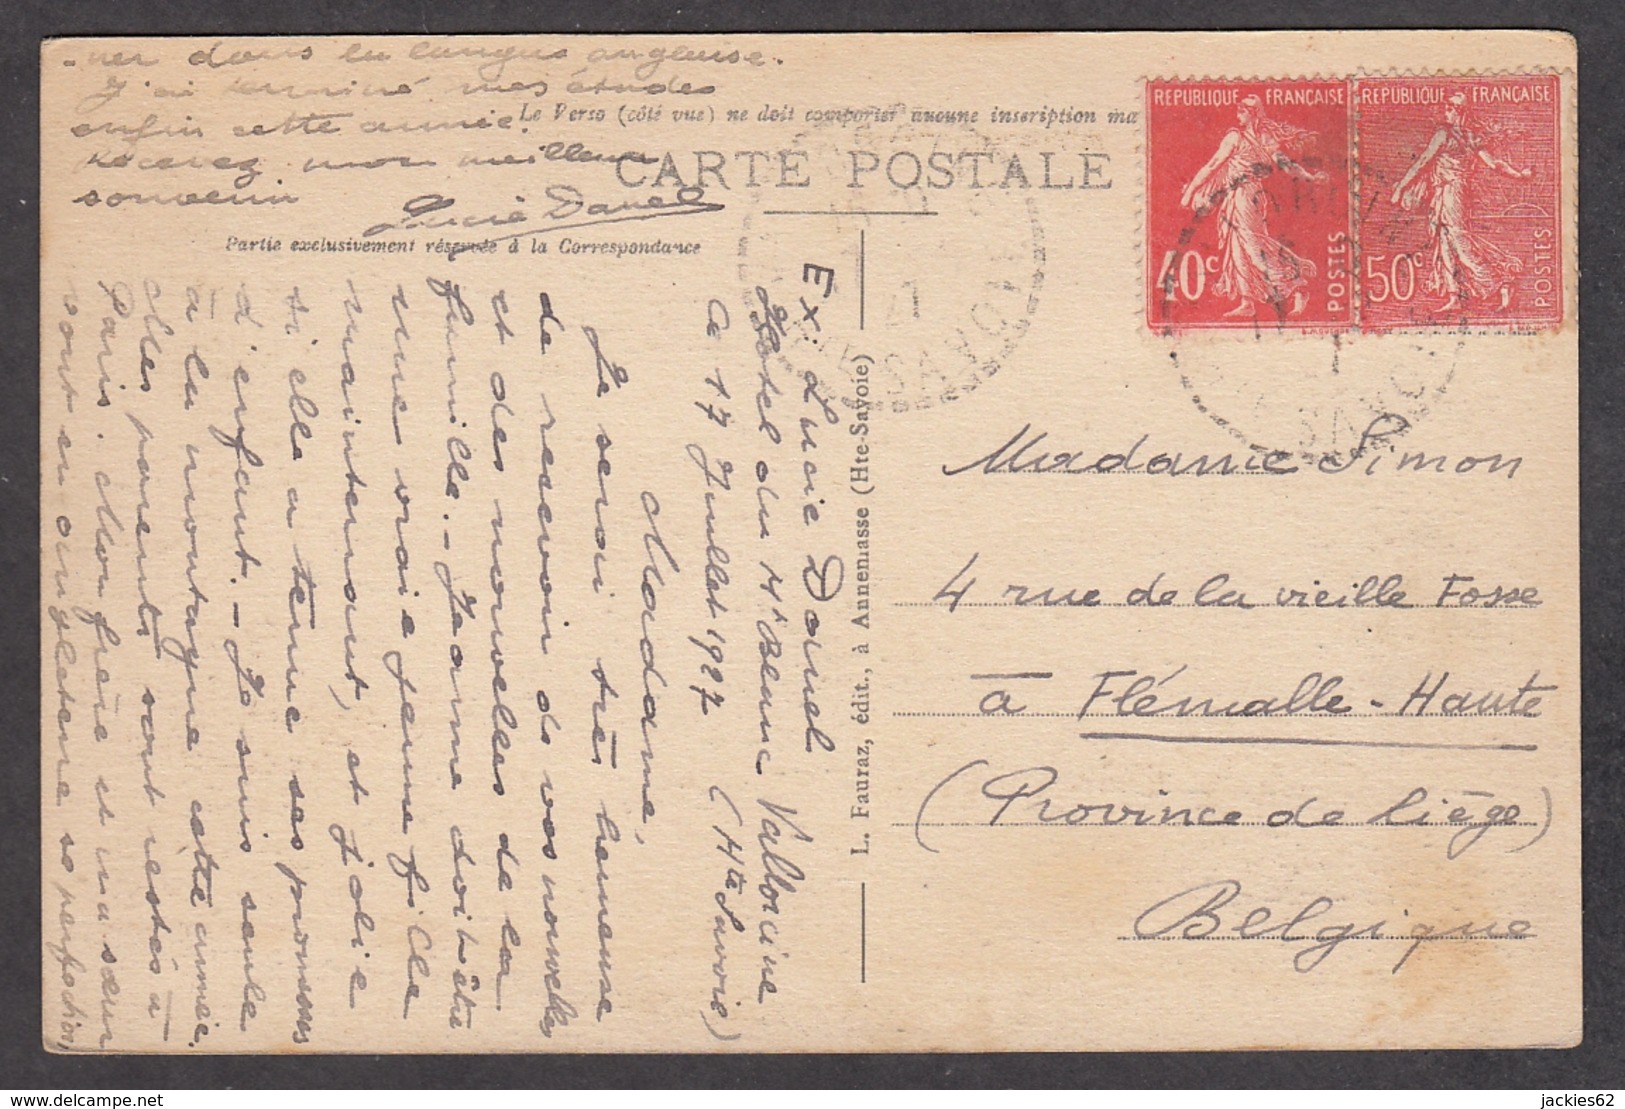 Ex. Lucie Danel
Hôtel du Mt Blanc Vallorcine
Ce 17 Juillet 1927 (Hte Savoie)
Madame,
Je serai très heureuse
de recevoir de vos nouvelles
et des nouvelles de la
famille. - Jeanne doit être
une vraie jeune fille
maintenant, et jolie
si elle a tenue ses promesses
d'enfant. - Je suis seule
à la montagne cette année.
Mes parents sont restés à
Paris. Mon frère et ma sœur
sont en angleterre se perfection
-ner dans la langue anglaise.
J'ai terminé mes études
enfin cette année.
Recevez mon meilleur
souvenir
Lucie Danel
Le Verso (côté vue) ne doit comporter aucune inscription ma
CARTE POSTALE
Partie exclusivement réservée à la Correspondance
L. Fauraz, édit., à Annemasse (Hte-Savoie)
REPUBLIQUE FRANÇAISE
40c
POSTES
REPUBLIQUE FRANÇAISE
50c
POSTES
SAVOIE
Madame Simon
4 rue de la vieille Fosse
à Flémalle-Haute
(Province de Liège)
Belgique
delcampe.net
jackies62